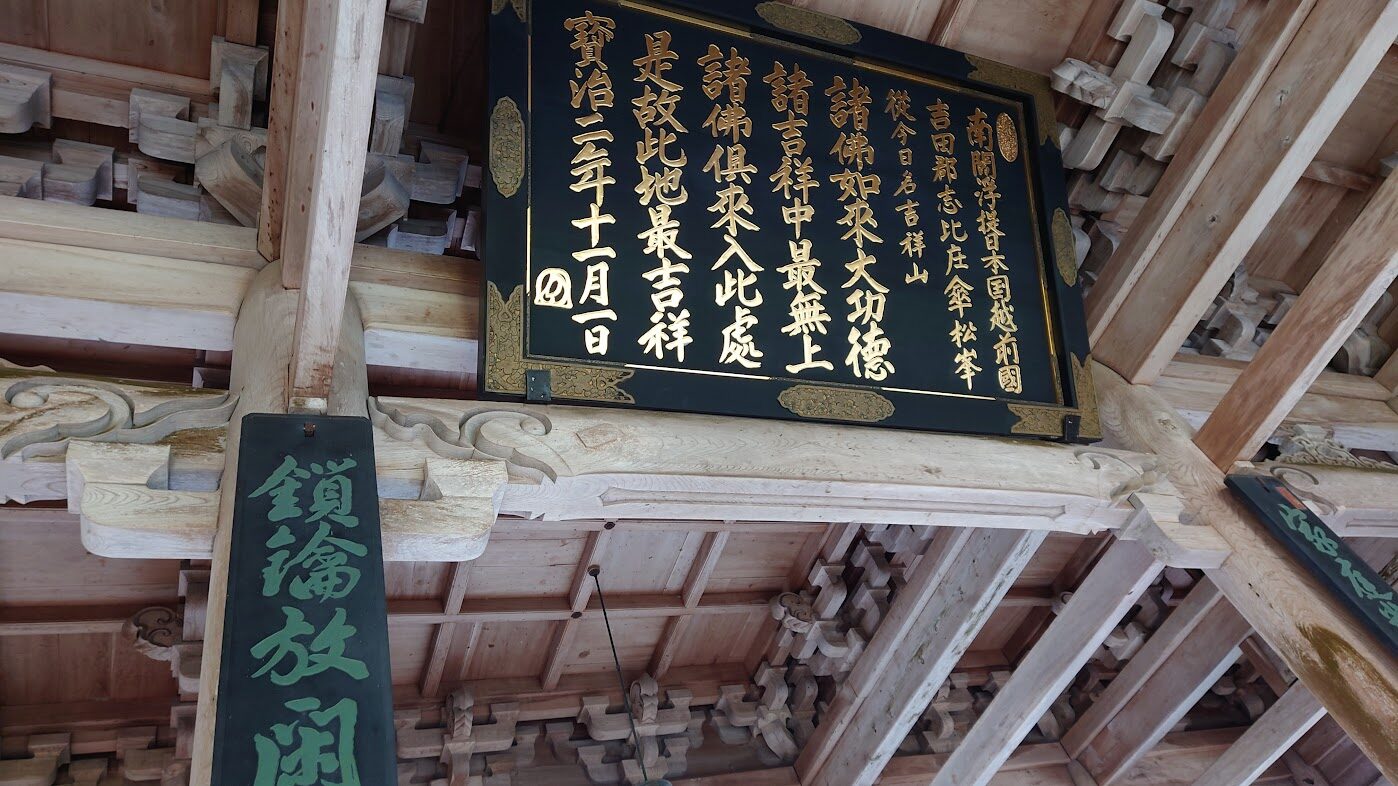 南閻浮提日本国越前國
吉田郡志比庄傘松峯
從今日名吉祥山
諸佛如來大功德
諸吉祥中最無上
諸佛俱來入此處
是故此地最吉祥
寶治二年十一月一日
鎖鑰放閑